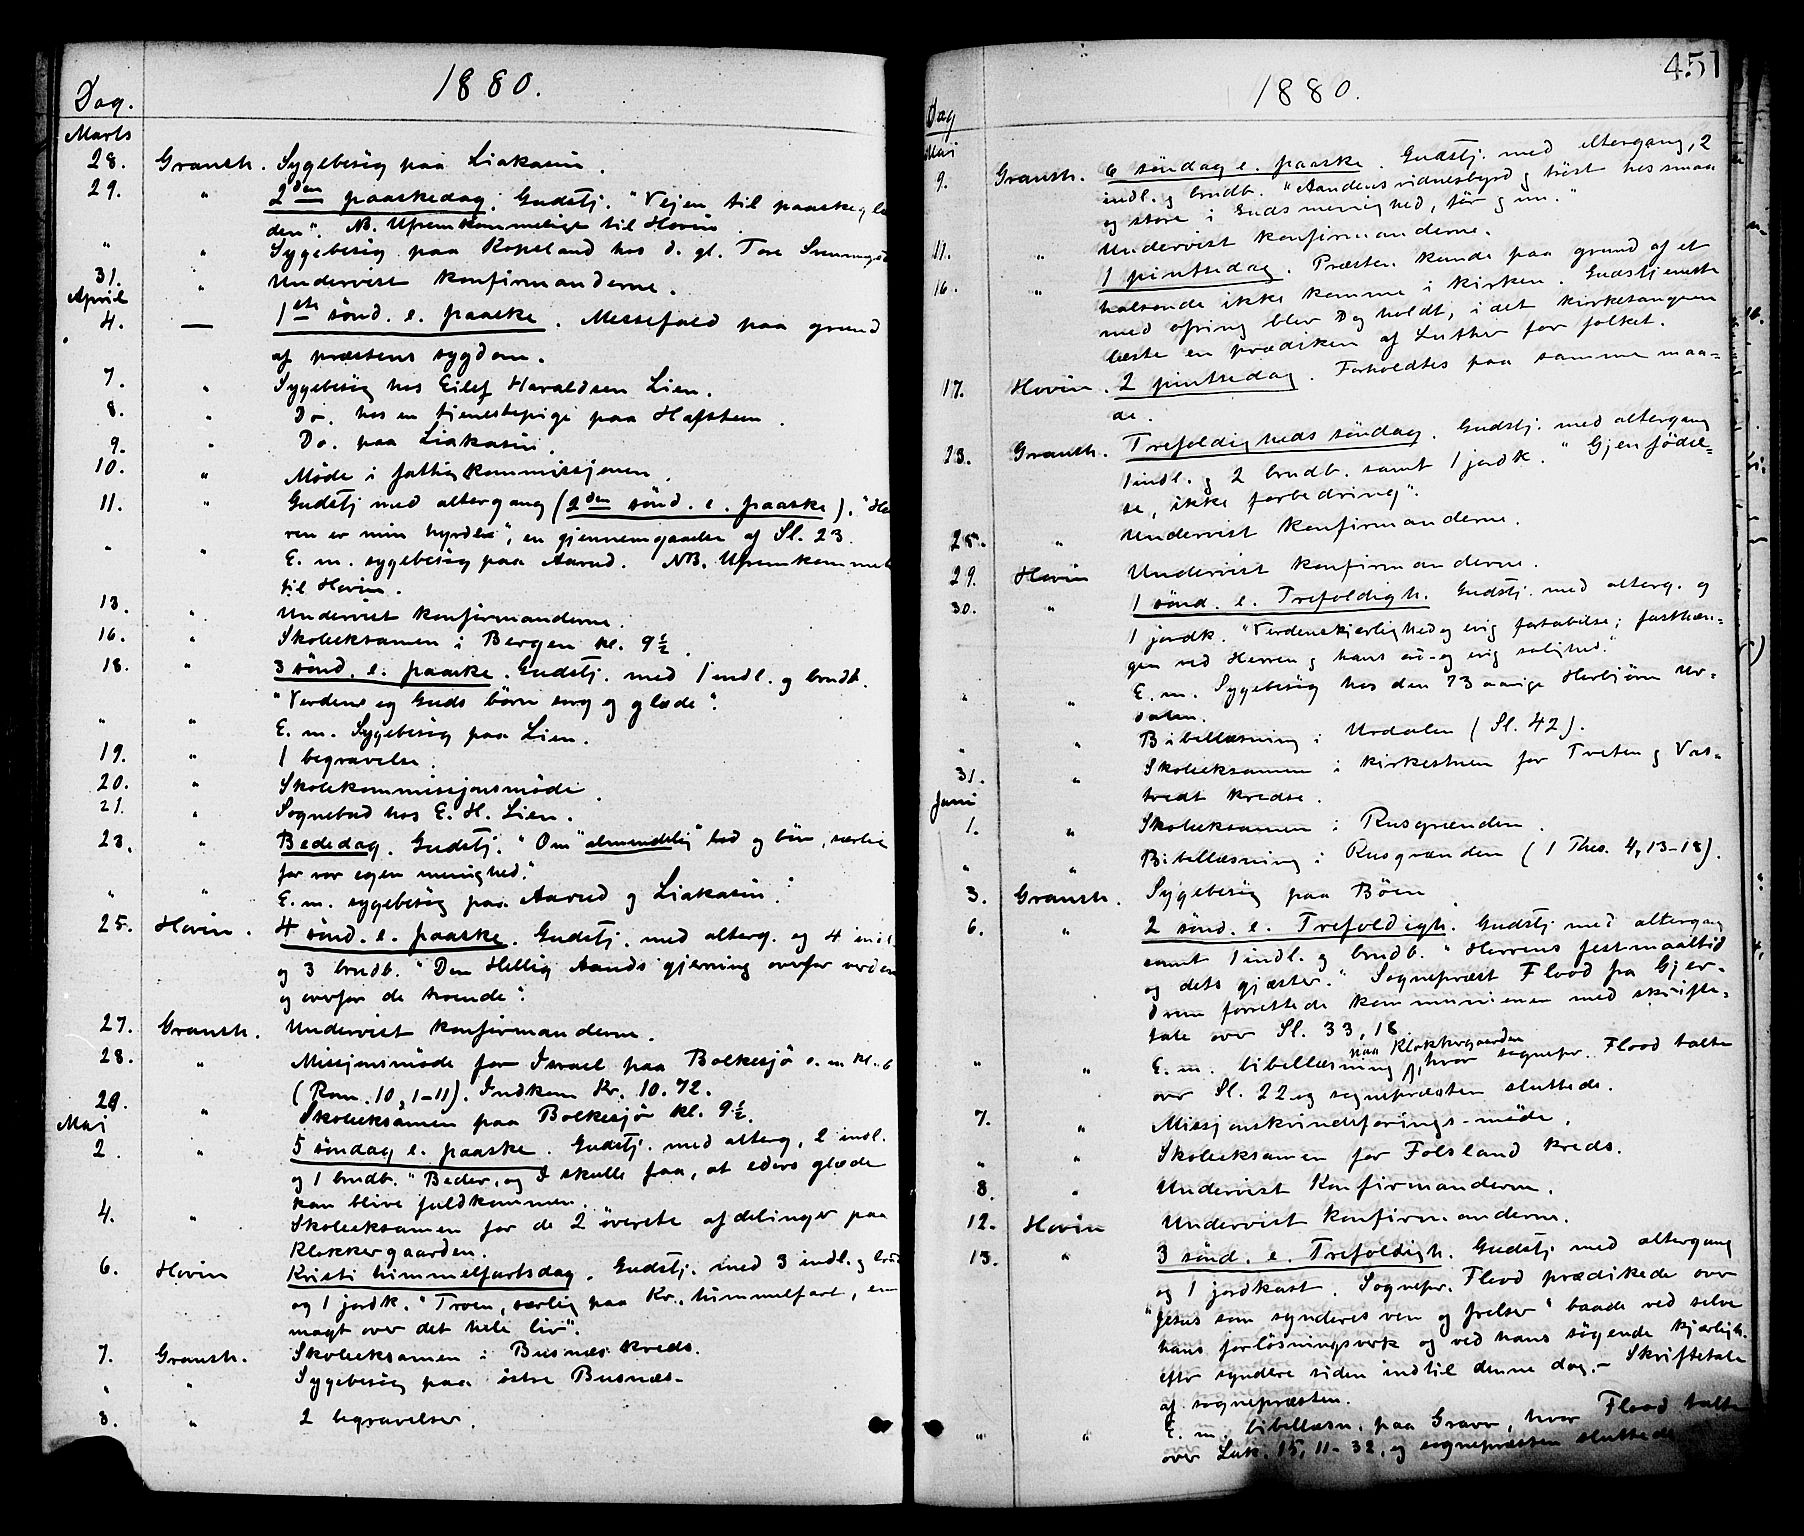 1880.
Dag.
Marts
28. Gransh. Sygebesøg paa Liakasin.
29. " 2den paaskedag. Gudstj. "Vejen til paaskeglæ
den". NB. Ufremkommeligt til Hovin.
" " Sygebesøg paa Kopsland hos d. gl. Tore
31. " Undervist konfirmanderne.
April
4. — 1ste sønd. e. paaske. Messefald paa grund
af præstens sygdom.
7. " Sygebesøg hos Eilef Haraldsen Lien.
8. " Do. hos en tjenestepige paa Hafsten.
9. " Do. paa Liakasin.
10. " Møde i fattigkommissjonen.
11. " Gudstj med altergang (2den sønd. e. paaske). "Her
ren er min hyrde", en gjennemgaaelse af Sl. 23.
" " E. m. sygebesøg paa Aarud. NB. Ufremkommel
til Hovin.
13. " Undervist konfirmanderne.
16. " Skoleeksamen i Bergen kl. 9½.
18. " 3 sønd. e. paaske. Gudstj. med 1 indl. og brudb.
"Verdens og Guds børns sorg og glæde".
" " E. m. Sygebesøg paa Lien.
19. " 1 begravelse.
20. " Skolekommissjonsmøde.
21. " Sognebud hos E. H. Lien.
23. " Bededag. Gudstj. "Om "almindelig" bod og bøn, særlig
for vor egen menighed."
" " E. m. sygebesøg paa Aarud og Liakasin.
25. Hovin. 4 sønd. e. paaske. Gudstj. med alterg. og 4 indl.
og 3 brudb. "Den Hellig Aands gjerning overfor verden
og overfor de troende".
27. Gransh. Undervist konfirmanderne.
28. " Missjonsmøde for Israel paa Bolkesjø e. m. kl. 6
(Rom. 10, 1-11). Indkom Kr. 10.72.
29. " Skoleeksamen paa Bolkesjø kl. 9½.
Mai
2. " 5 søndag e. paaske. Gudstj. med alterg, 2 indl.
og 1 brudb. "Beder, og I skulle faa, at eders glæde
kan blive fuldkommen.
4. " Skoleeksamen for de 2 øverste afdelinger paa
Klokkergaarden.
6. Hovin Kristi himmelfartsdag. Gudstj. med 3 indl. og brud
og 1 jordk. "Troen, særlig paa Kr. himmelfart, en
magt over det hele liv".
7. Gransh. Skoleeksamen i Busnæs kreds.
" " Sygebesøg paa østre Busnæs.
8. " 2 begravelser.
451
1880.
Dag
Mai
9. Gransh. 6 søndag e. paaske. Gudstj. med altergang, 2
indl. og brudb. "Aandens vidnesbyrd og trøst hos smaa
og store i Guds menighed, før og nu."
11. " Undervist konfirmanderne.
16. " 1 pintsedag. Præsten kunde paa grund af et
halsonde ikke komme i kirken. Gudstjeneste
med ofring blev dog holdt, i det kirkesangeren
læste en prædiken af Luther for folket.
17. Hovin. 2 pintsedag. Forholdtes paa samme maa=
de.
23. Gransh. Trefoldigheds søndag. Gudstj. med altergang
1 indl. og 2 brudb. samt 1 jordk. "Gjenfødel=
se, ikke forbedring".
25. " Undervist konfirmanderne.
29. Hovin Undervist konfirmanderne.
30. " 1 sønd. e. Trefoldigh. Gudstj. med alterg. og
1 jordk. "Verdenskjerlighed og evig fortabelse; fasthæn=
gen ved Herren og hans eie og evig salighed."
" " E. m. Sygebesøg hos den 73 aarige Herbjørn Ur=
dalen.
" " Bibellæsning i Urdalen (Sl. 42).
31. " Skoleeksamen i kirkestuen for Tveten og Vas=
tredt kredse.
Juni
1. " Skoleeksamen i Rusgrænden.
" " Bibellæsning i Rusgrænden (1 Thes. 4, 13-18).
3. Gransh. Sygebesøg paa Bøen
6. " 2 sønd. e. Trefoldigh. Gudstj med altergang
samt 1 indl. og brudb. "Herrens festmaaltid
og dets gjæster." Sognepræst Flood fra Gjer=
drum forrettede kommunionen med skrifte=
tale over Sl. 33, 18.
" " E. m. bibellæsning paa Klokkergaarden, hvor sognepr. Flood talte
over Sl. 22 og sognepræsten sluttede.
7. " Missjonskvindeforings-møde.
" " Skoleeksamen for Følsland kreds.
8. " Undervist Konfirmanderne.
12. Hovin Undervist konfirmanderne.
13. " 3 sønd. e. Trefoldigh. Gudstj med altergang
og 1 jordkast. Sognepr. Flood prædikede over
"Jesus som synderes ven og frelser" baade ved selve
hans forløsningsverk og ved hans søgende kjærligh.
efter syndere siden indtil denne dag. - Skriftetale
af sognepræsten.
" " E. m. bibellæsn. paa Graver, hvor Flood talte
over Luk. 15, 11-32. og sognepræsten sluttede